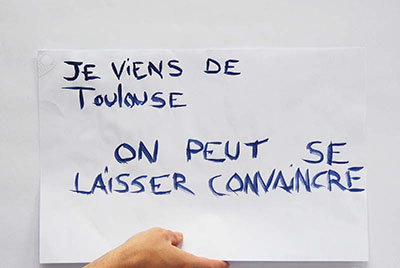 JE VIENS DE
TOULOUSE
ON PEUT SE
LAISSER CONVAINCRE